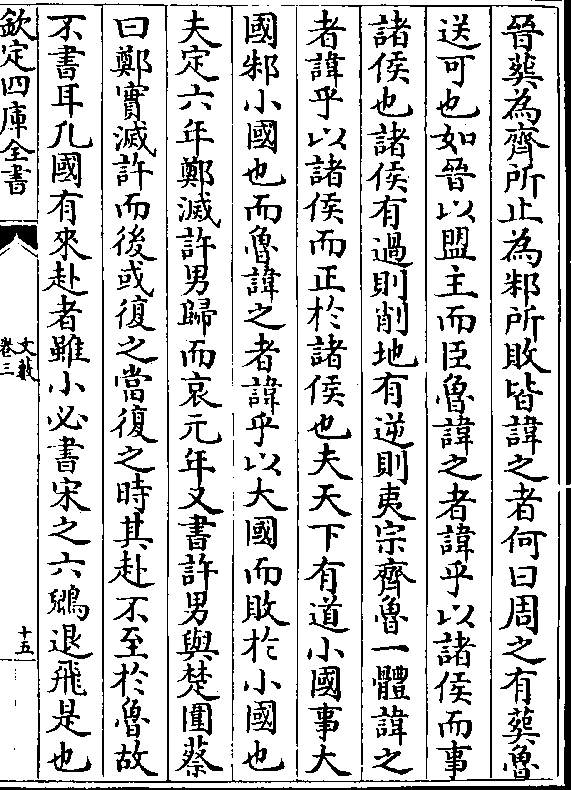 晉葬為齊所止為邾所敗皆諱之者何曰周之有葬魯
送可也如晉以盟主而臣魯諱之者諱乎以諸侯而事
諸侯也諸侯有過則削地有逆則夷宗齊魯一體諱之
者諱乎以諸侯而正於諸侯也夫天下有道小國事大
國邾小國也而魯諱之者諱乎以大國而敗於小國也
夫定六年鄭滅許男歸而哀元年又書許男與楚圍蔡
曰鄭實滅許而後或復之當復之時其赴不至於魯故
不書耳凡國有來赴者雖小必書宋之六鷁退飛是也
欽定四庫全書
文載
卷三
十五